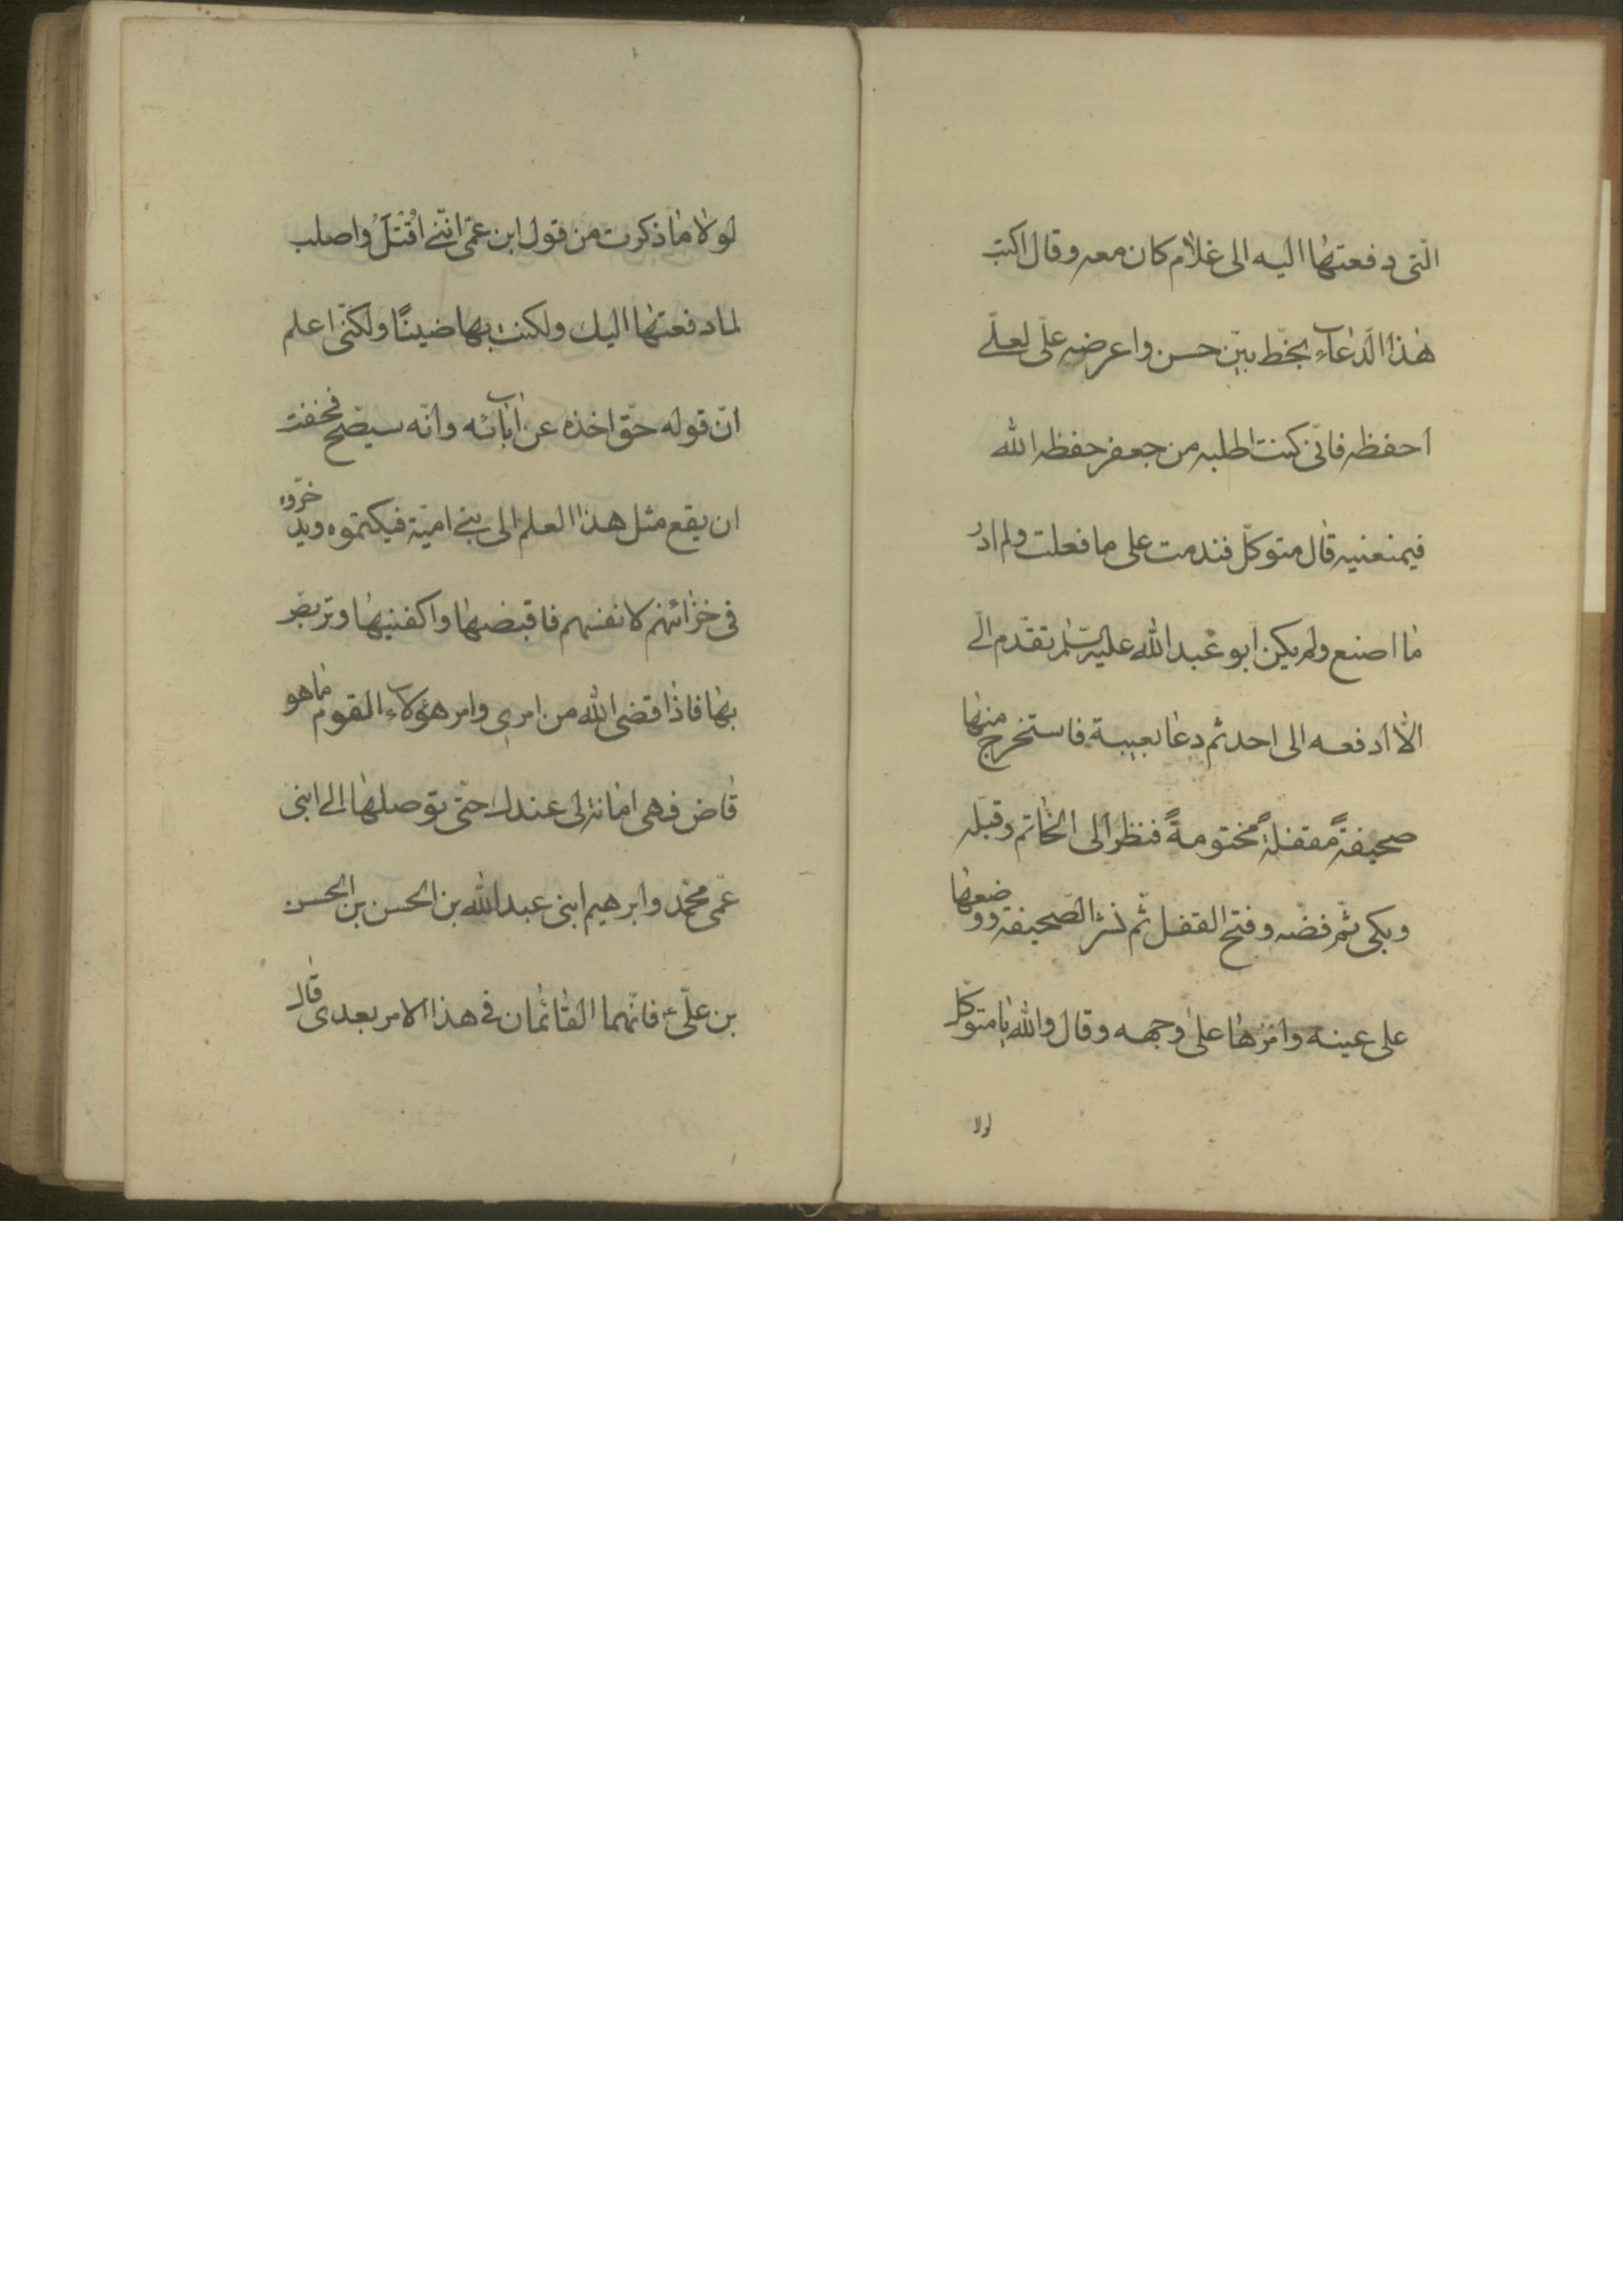 الّتى دفعتها اليه الى غلام كان معه وقال اكتب
هذا الدّعاء بخطّ بيّن حسن واعرضه علّى لعلّى
احفظه فانّى كنت اطلبه من جعفر حفظه الله
فيمنعنيه قال متوكّل فندمت على ما فعلت ولم ادر
ما اصنع ولم يكن ابو عبد الله عليه السّلم تقدّم الىّ
الّا ادفعه الى احد ثم دعا بعيبة فاستخرج منها
صحيفةً مقفلةً مختومةً فنظر الى الخاتم وقبّله
وبكى ثمّ فضّه وفتح القفل ثمّ نشر الصّحيفة ووضعها
على عينه وامرّها على وجهه وقال والله يا متوكّل
لولا
لولا ما ذكرت من قول ابن عمّى انّنى اُقْتَلُ واصلب
لما دفعتها اليك ولكنت بها ضنينًا ولكنّى اعلم
انّ قوله حقّ اخذه عن آبائه وانّه سيصّح فخفت
ان يقع مثل هذا العلم الى بنى اميّة فيكتموه ويدّخروه
فى خزائنهم لانفسهم فاقبضها واكفنيها وتربّص
بها فاذا قضى الله من امرى وامر هؤلاء القوم ما هو
قاض فهى امانة لى عندك حتّى توصلها الى ابنى
عمّى محمّد وابرهيم ابنى عبد الله بن الحسن بن الحسن
بن علّى ع فانّهما القائمان فى هذا الامر بعدى قال